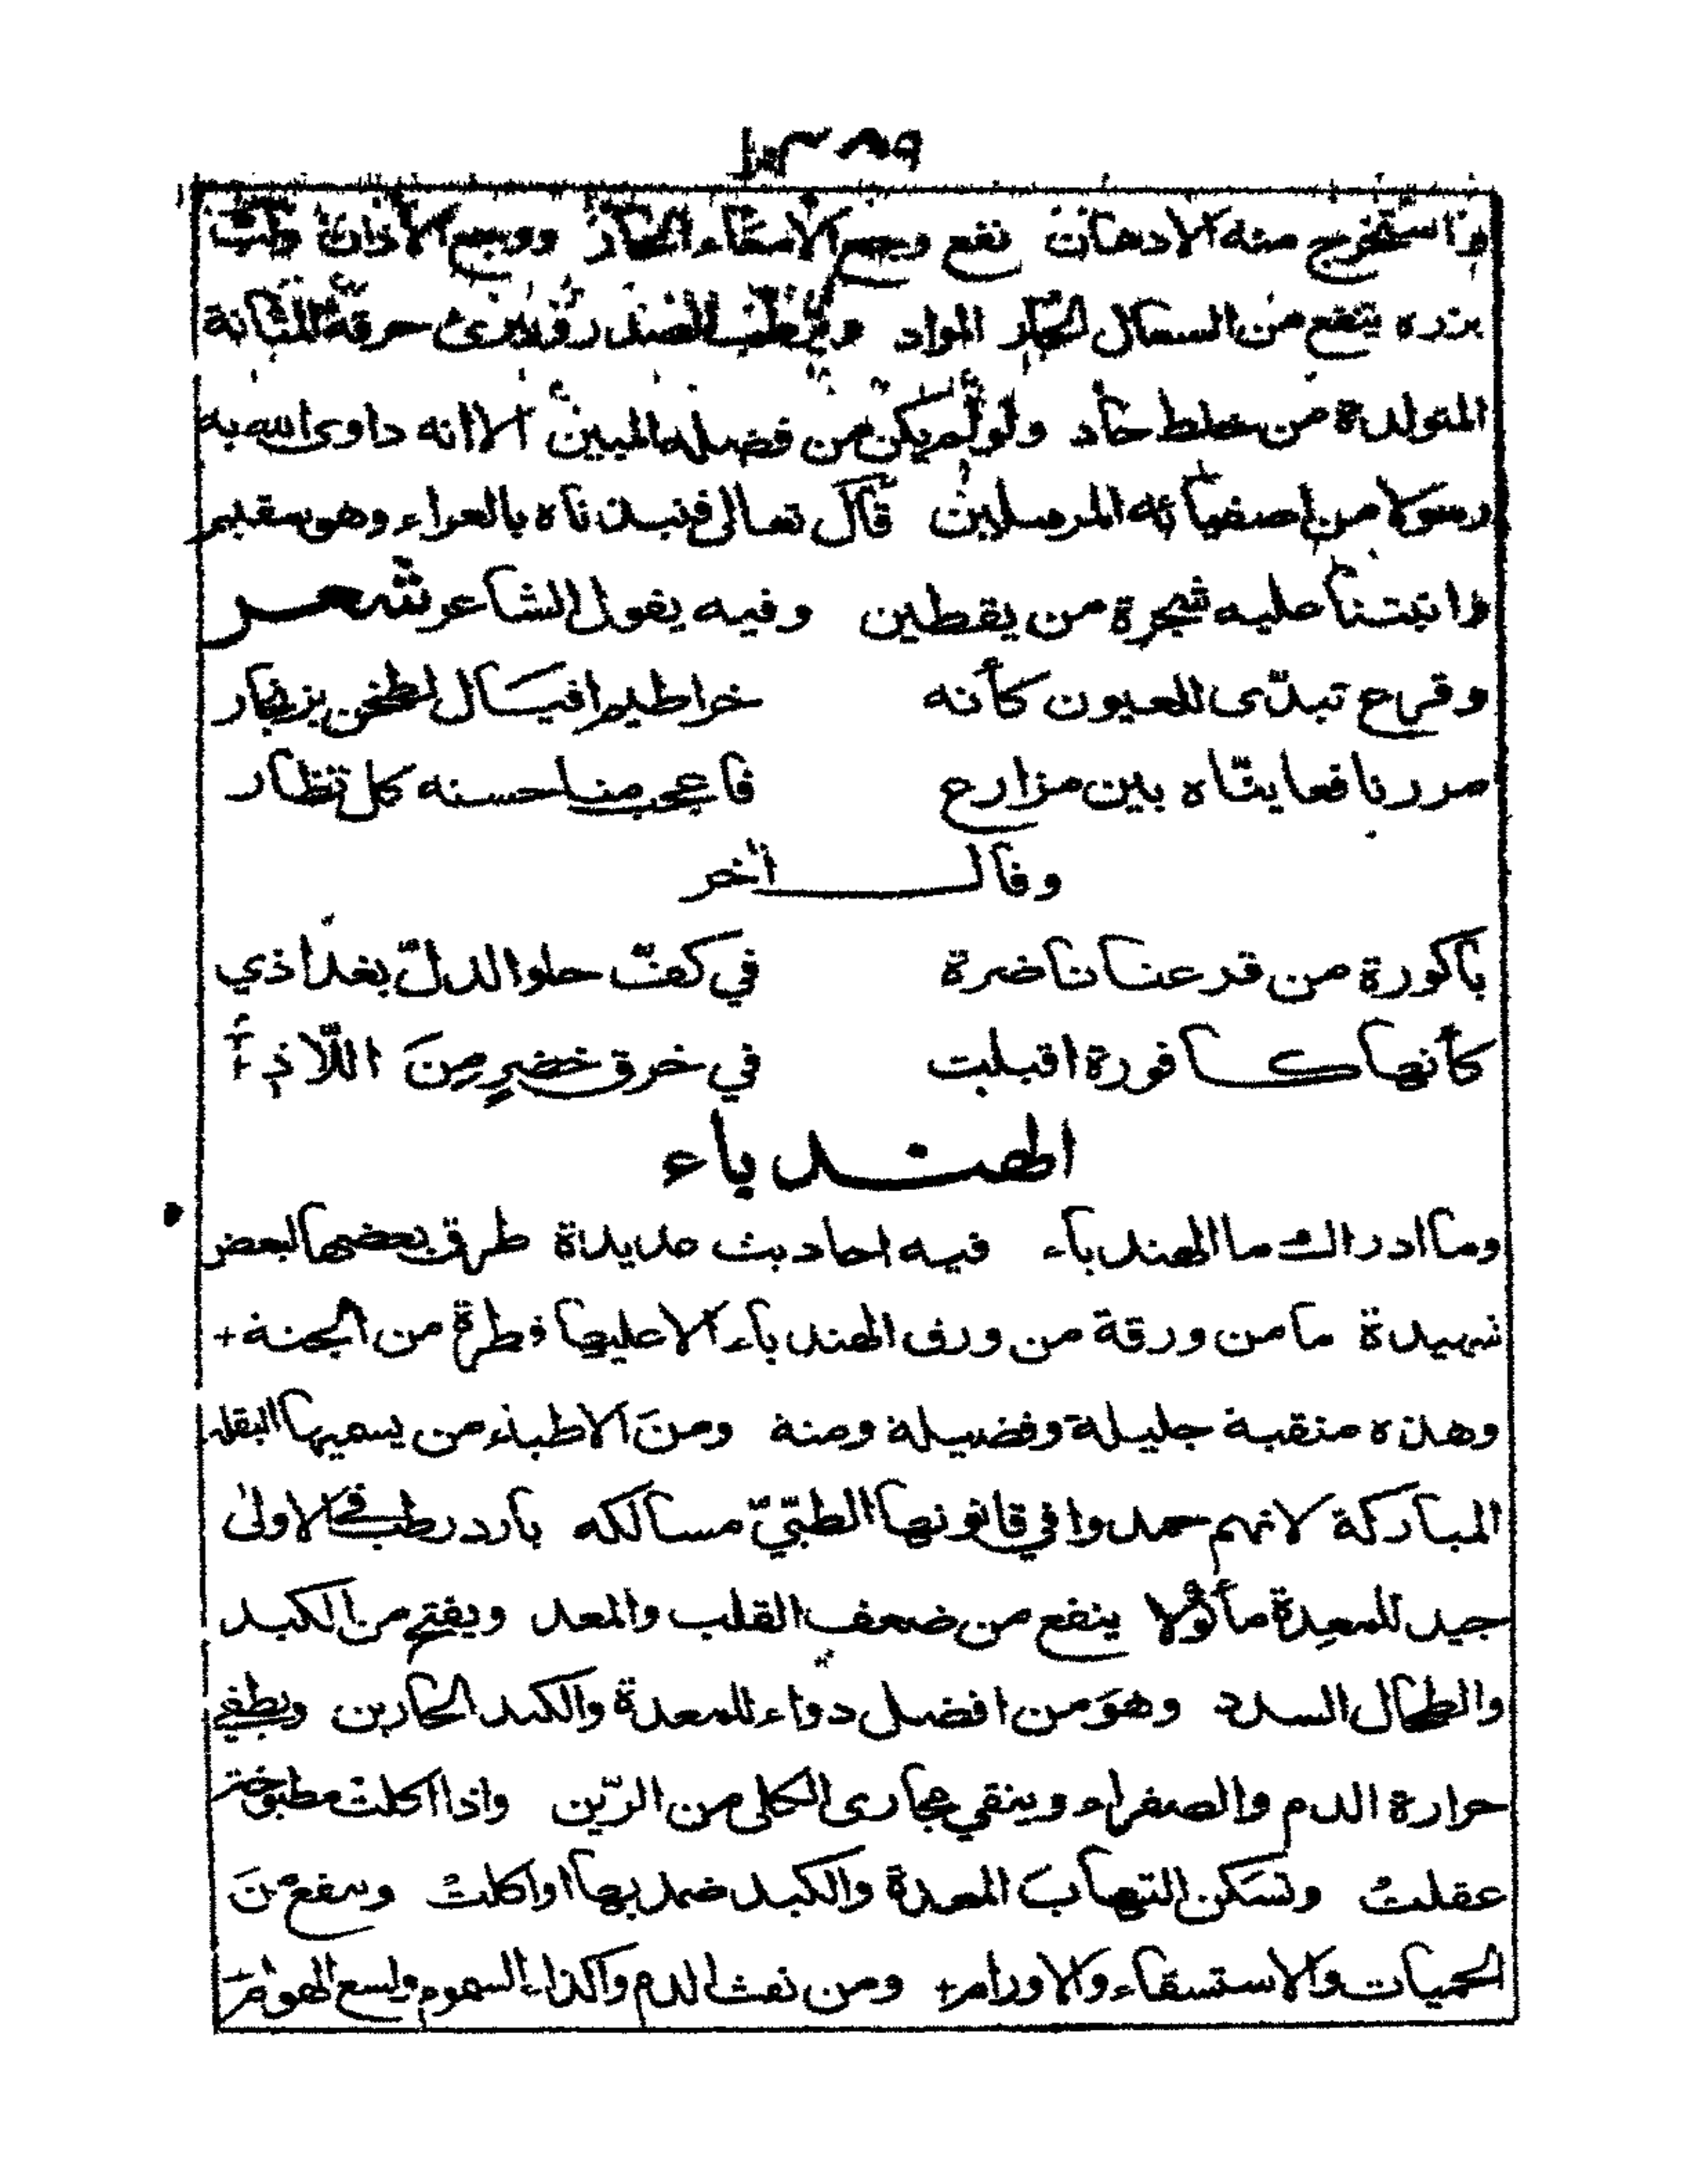 فاستخرج منه الادهان نفع وجع الامعاء الحار ووجع الاذان
بزره ينفع من السعال الحار المواد ويرطب الصدر ويبرئ حرقة المثانة
المتولدة من خلط حاد ولو لم يكن من فضله المبين الا انه داوى الله به
رسولا من اصفيائه المرسلين قال تعالى فنبذناه بالعراء وهو سقيم
وانبتنا عليه شجرة من يقطين وفيه يقول الشاعر شعر
وقرع تبدّى للعيون كأنه خراطيم افيال لطخن بزنجار
مررنا فعاينّاه بين مزارع فاعجب منا حسنه كل نظار
وقال آخر
باكورة من قرعنا ناضرة في كفّ حلو الدلّ بغداذي
كأنها كافورة اقبلت في خرق خضرٍ مِنَ اللّاذ
الهندباء
وما ادراك ما الهندباء فيه احاديث عديدة طرق بعضها لبعض
شهيدة ما من ورقة من ورق الهندباء الا عليها قطرة من الجنة
وهذه منقبة جليلة وفضيلة ومنة ومنَ الاطباء من يسميها البقلة
المباركة لانهم حمدوا في قانونها الطبّيّ مسالكه بارد رطب في الاولى
جيد للمعِدة مأكولا ينفع من ضعف القلب والمعد ويفتح من الكبد
والطحال السدد وهوَ من افضل دواء للمعدة والكبد الحارين ويطفي
حرارة الدم والصفراء وينقي مجارى الكلى من الرّين واذا اكلت مطبوخة
عقلت وتسَكن التهابَ المعدة والكبد ضمد بها او اكلت وينفع من
الحميات والاستسقاء والاورام ومن نفث الدم وكذا السموم ولسع الهوامّ